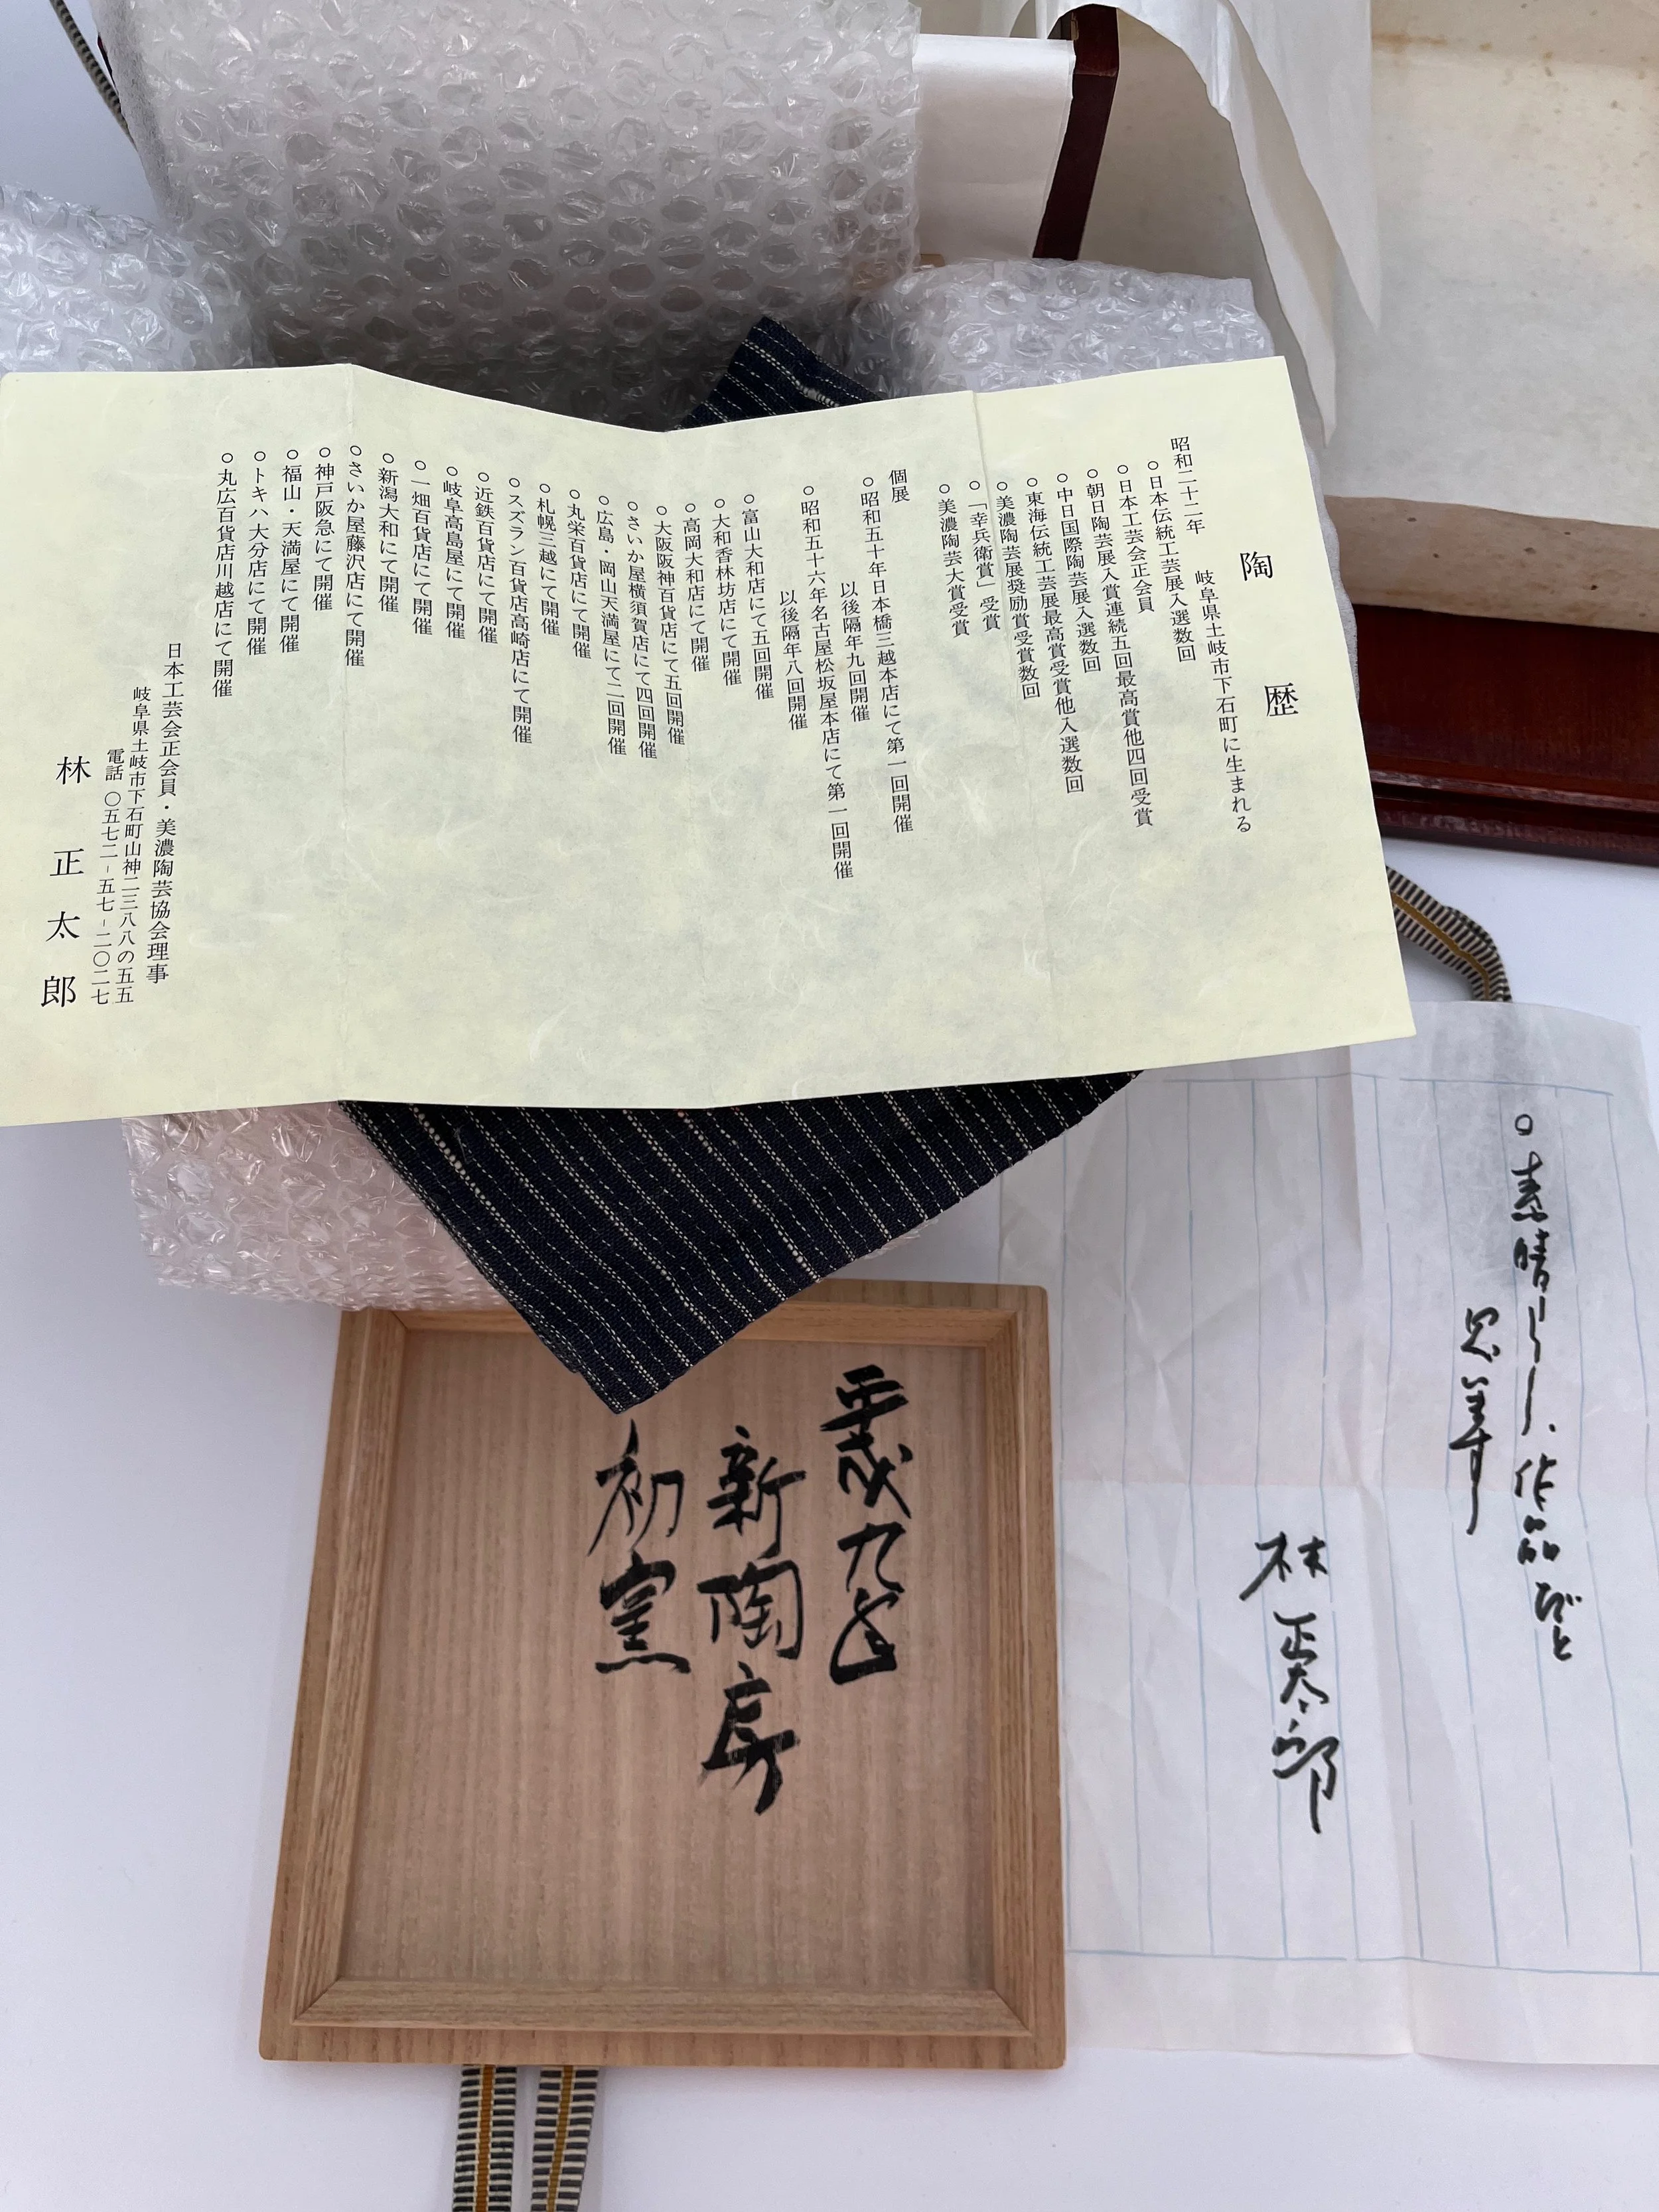 陶歴
昭和二十二年　岐阜県土岐市下石町に生まれる
○日本伝統工芸展入選数回
○日本工芸会正会員
○朝日陶芸展入賞連続五回最高賞他四回受賞
○中日国際陶芸展入選数回
○東海伝統工芸展最高賞受賞他入選数回
○美濃陶芸展奨励賞受賞数回
○「幸兵衛賞」受賞
○美濃陶芸大賞受賞
個展
○昭和五十年日本橋三越本店にて第一回開催
以後隔年九回開催
○昭和五十六年名古屋松坂屋本店にて第一回開催
以後隔年八回開催
○富山大和店にて五回開催
○大和香林坊店にて開催
○高岡大和店にて開催
○大阪阪神百貨店にて五回開催
○さいか屋横須賀店にて四回開催
○広島・岡山天満屋にて二回開催
○丸栄百貨店にて開催
○札幌三越にて開催
○スズラン百貨店高崎店にて開催
○近鉄百貨店にて開催
○岐阜高島屋にて開催
○一畑百貨店にて開催
○新潟大和にて開催
○さいか屋藤沢店にて開催
○神戸阪急にて開催
○福山・天満屋にて開催
○トキハ大分店にて開催
○丸広百貨店川越店にて開催
日本工芸会正会員・美濃陶芸協会理事
岐阜県土岐市下石町山神二三八八の五五
電話　〇五七二-五七-二〇二七
林正太郎
○素晴らしい作品だと
思います
林正太郎
平成九年
新陶房
初窯